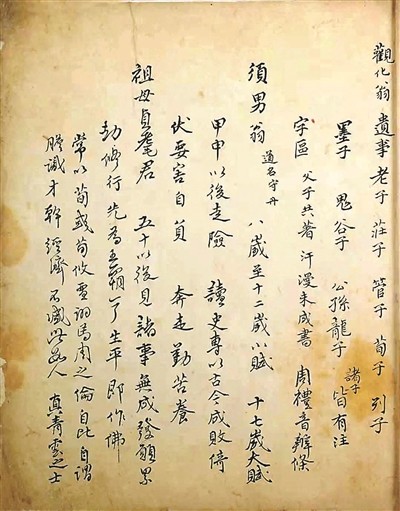 觀化翁遺事老子 莊子 管子 荀子 列子
墨子 鬼谷子 公孫龍子 諸子皆有注
字區 父子共著 汗漫未成書 周禮音辨條
須男翁 道名守丹 八歲至十二歲小賦 十七歲大賦
甲申以後走險 讀史專以古今成敗倚
伏要害自負 奔走勤苦養
祖母貞髦君 五十以後見諸事無成發願累
劫修行先為五霸了生平即作佛
常以荀彧荀攸賈詡馬周之倫自比自謂
膽識才幹經濟不減此數人 真青雲之士